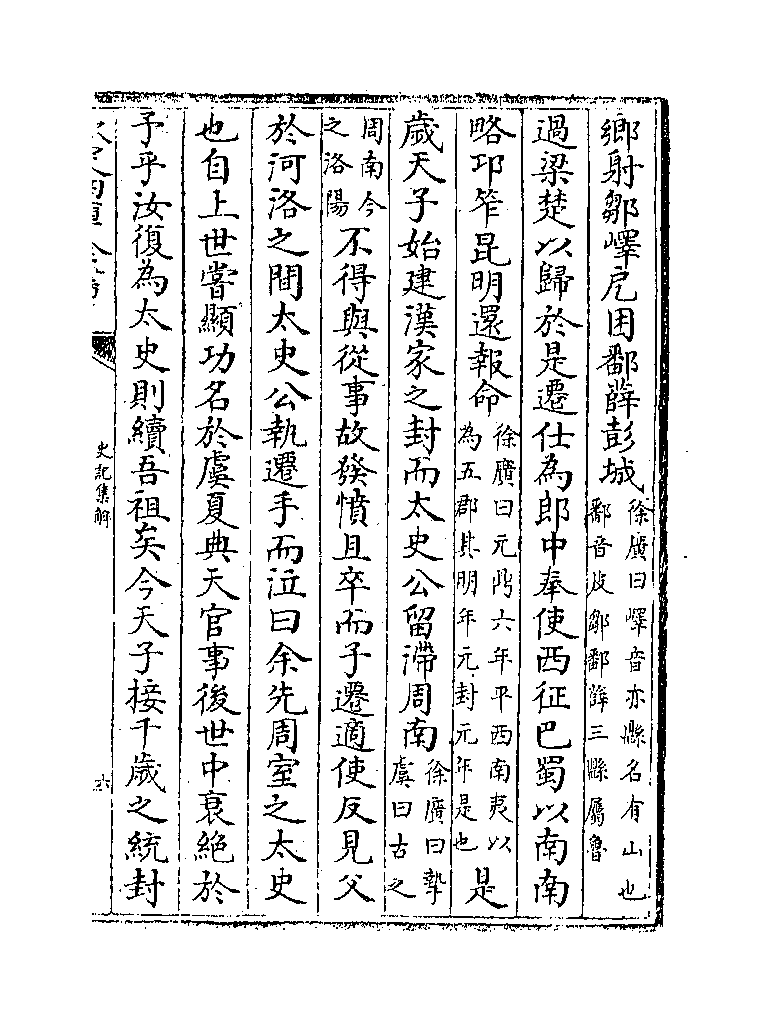 鄉射鄒嶧戹困鄱薛彭城徐廣曰嶧音亦縣名有山也鄱音皮鄒鄱薛三縣屬魯
過梁楚以歸於是遷仕為郎中奉使西征巴蜀以南南
略邛笮昆明還報命徐廣曰元鼎六年平西南夷以為五郡其明年元封元年是也是
歲天子始建漢家之封而太史公留滯周南徐廣曰摯虞曰古之
周南今之洛陽不得與從事故發憤且卒而子遷適使反見父
於河洛之間太史公執遷手而泣曰余先周室之太史
也自上世嘗顯功名於虞夏典天官事後世中衰絶於
予乎汝復為太史則續吾祖矣今天子接千歲之統封
史記集解
六